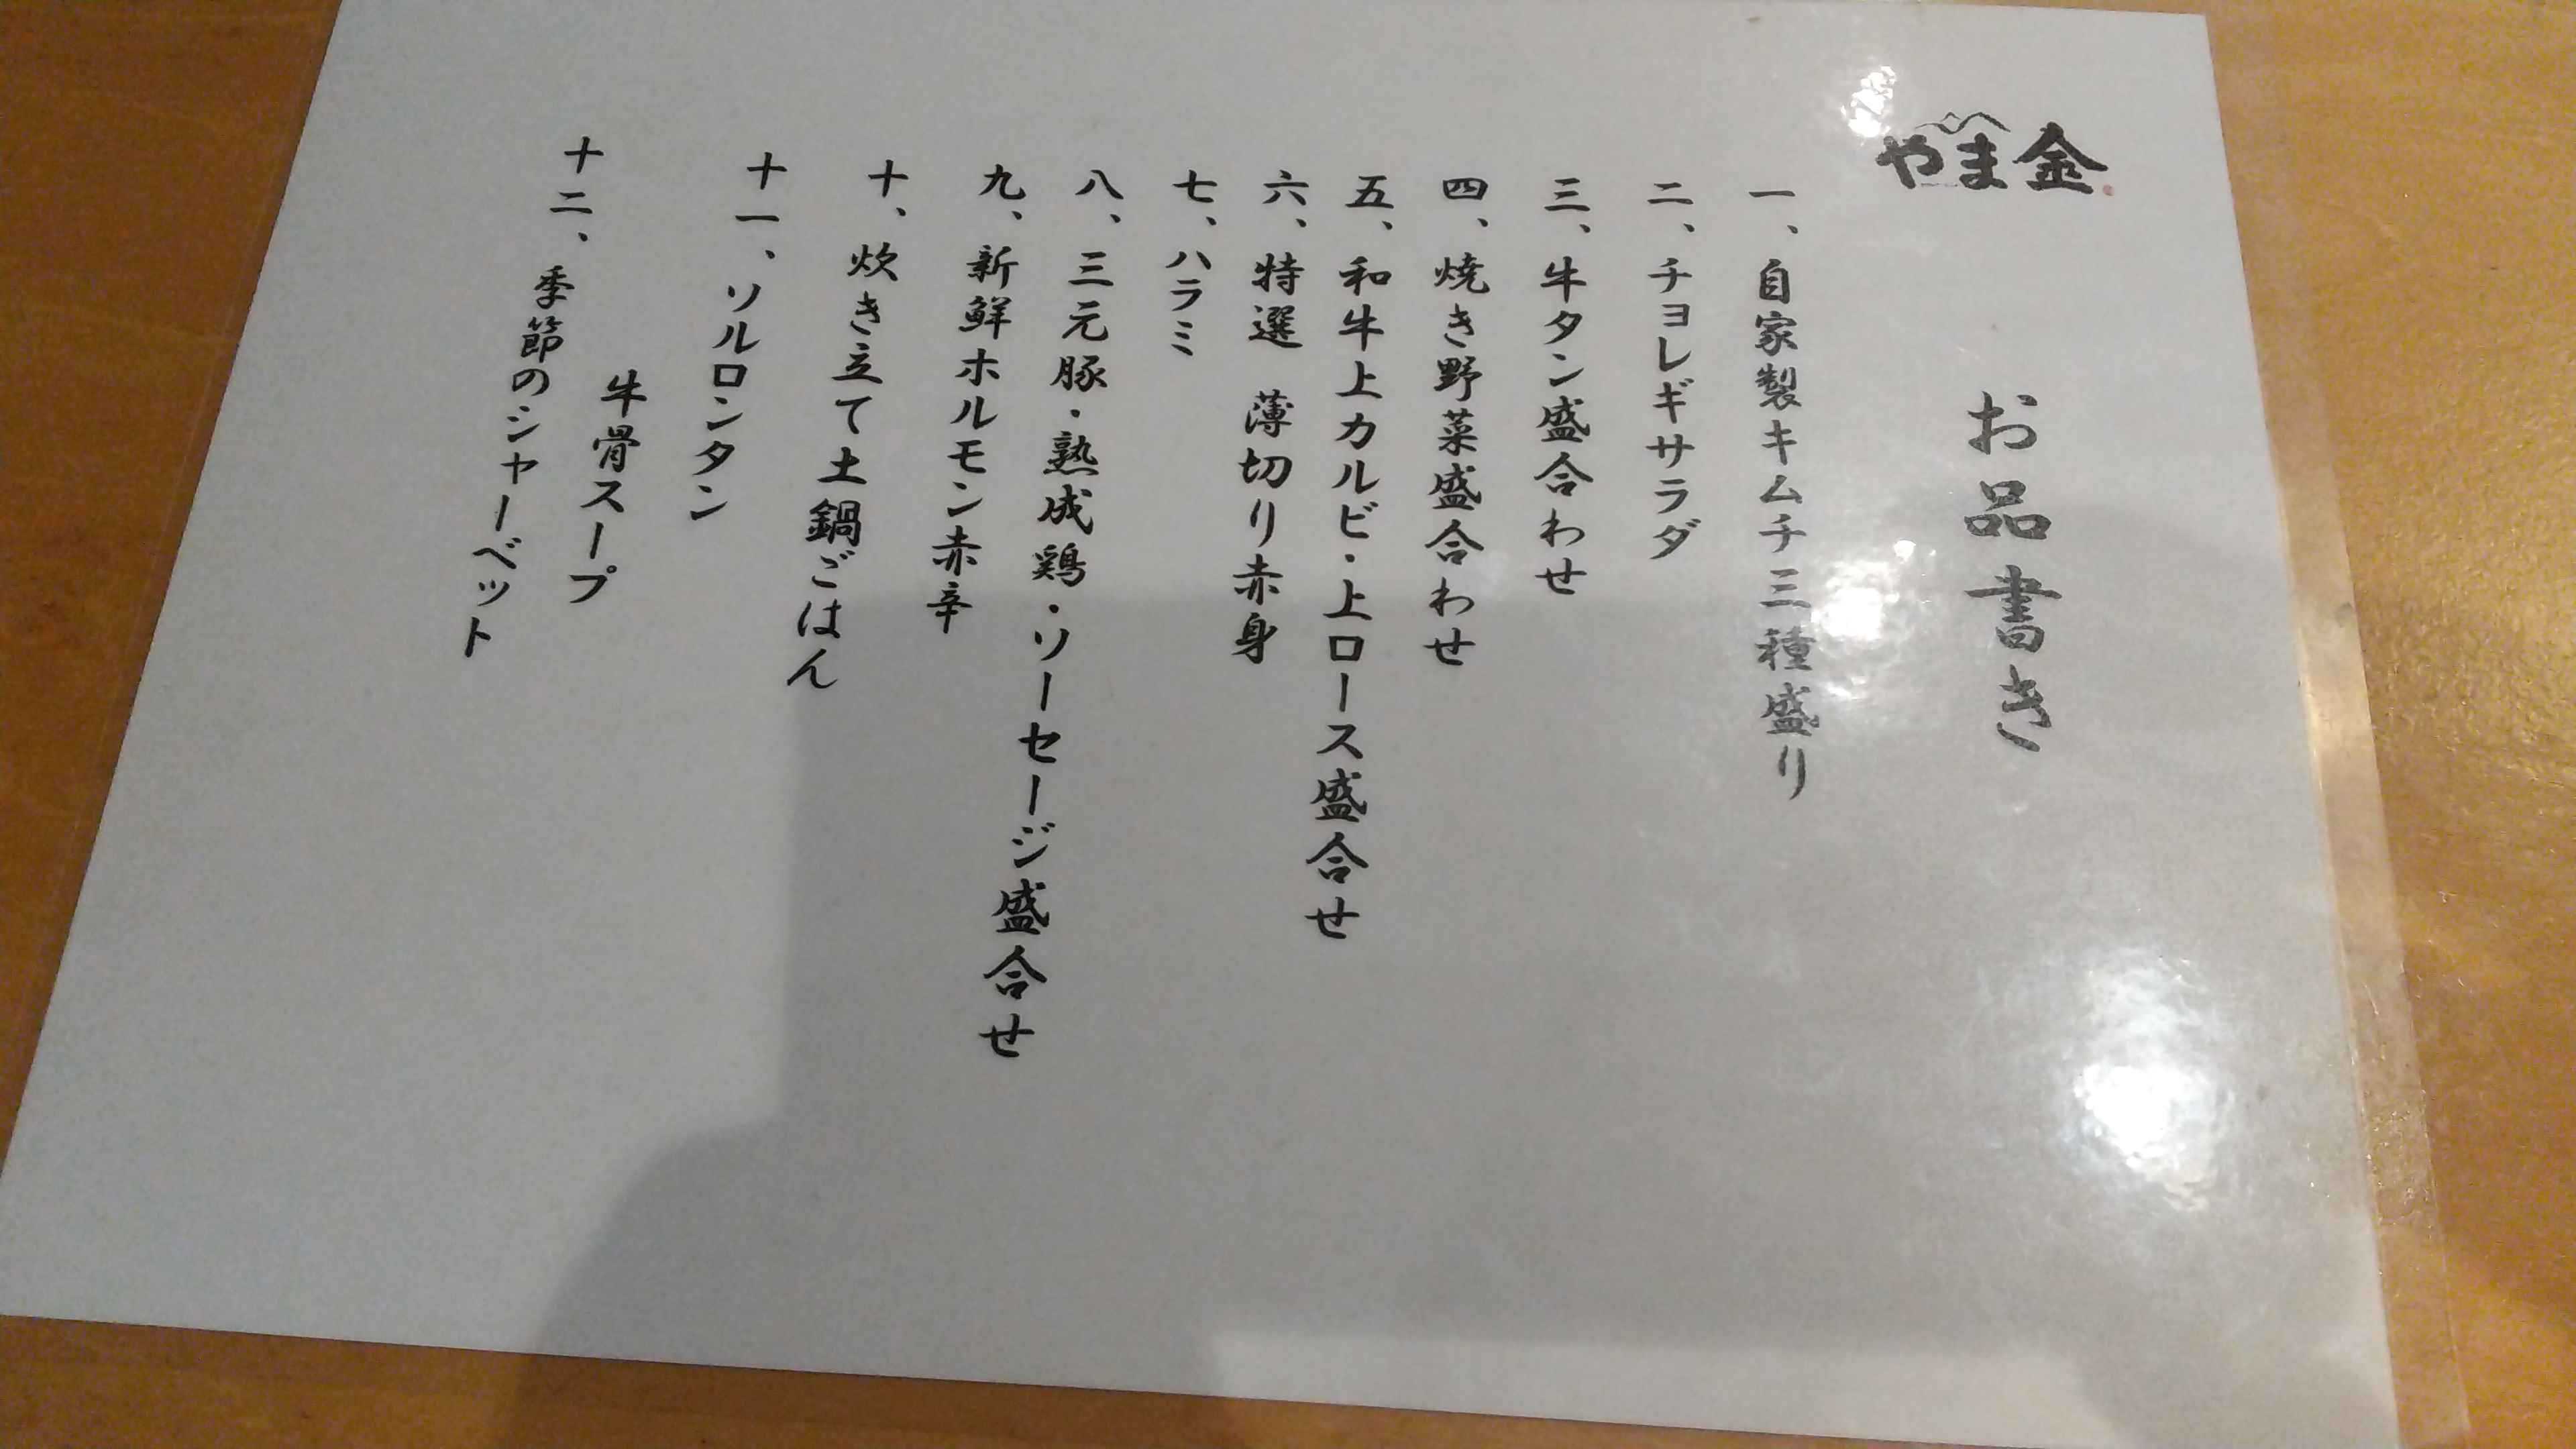 やま金
お品書き
一、自家製キムチ三種盛り
二、チョレギサラダ
三、牛タン盛合わせ
四、焼き野菜盛合わせ
五、和牛上カルビ・上ロース盛合せ
六、特選 薄切り赤身
七、ハラミ
八、三元豚・熟成鶏・ソーセージ盛合せ
九、新鮮ホルモン赤辛
十、炊き立て土鍋ごはん
十一、ソルロンタン
牛骨スープ
十二、季節のシャーベット